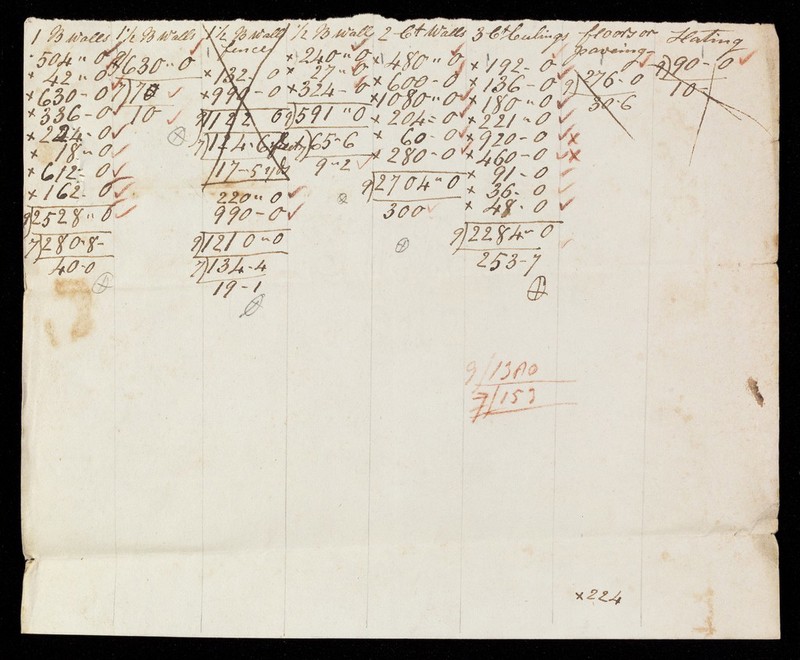 1 B Walls
504 " 0
x 42 " 0
x 630 - 0
x 336 - 0
x 224 - 0
x 18 " 0
x 612 - 0
x 162 - 0
9)2528 " 0
7)280.8 -
40-0
1½ B Walls
9)630 " 0
7)70
10 -
1½ B Wall
fence
x 132 - 0
x 990 - 0
9)1122 0
7)124.6
17-5 yds
220 " 0
990 - 0
9)1210 - 0
7)134-4
19-1
½ B Wall
x 240 " 0
x 27 " 0
x 324 - 0
9)591 " 0
65-6
9-2
2 Ct Walls
x 480 " 0
x 600 - 0
x 1080 " 0
x 204 - 0
x 60 - 0
x 280 - 0
9)2704 " 0
300
3 Ct Ceilings
x 192 - 0
x 136 - 0
x 180 " 0
x 221 - 0
x 920 - 0 x
x 460 - 0 x
x 91 - 0
x 36 - 0
x 48 - 0
9)2284 - 0
253-7
9/1380
7/153
floors or
paveing -
9)276-0
30-6
x 224
Slating
9)90 - 0
10 -